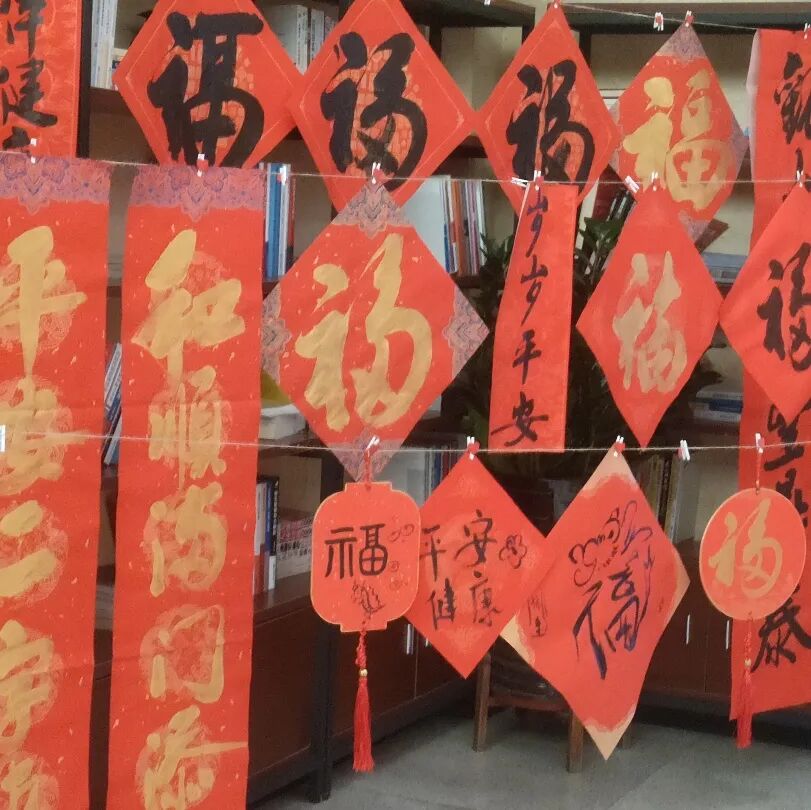 健
福
福
福
福
平安二字
和顺满门添
福
岁岁平安
福
福
福
平安
健康
福
福
泰